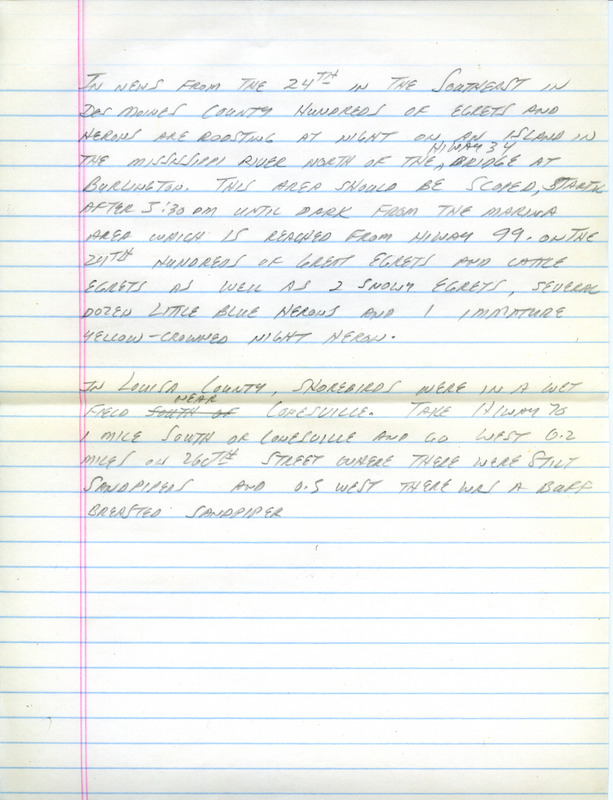 IN NEWS FROM THE 24TH IN THE SOUTHEAST IN
DES MOINES COUNTY HUNDREDS OF EGRETS AND
HERONS ARE ROOSTING AT NIGHT ON AN ISLAND IN
THE MISSISSIPPI RIVER NORTH OF THE HIWAY 34 BRIDGE AT
BURLINGTON. THIS AREA SHOULD BE SCOPED,
AFTER 5:30 PM UNTIL DARK FROM THE MARINA
AREA WHICH IS REACHED FROM HIWAY 99. ON THE
24TH HUNDREDS OF GREAT EGRETS AND CATTLE
EGRETS AS WELL AS 2 SNOWY EGRETS, SEVERAL
DOZEN LITTLE BLUE HERONS AND 1 IMMATURE
YELLOW-CROWNED NIGHT HERON.
IN LOUISA COUNTY, SHOREBIRDS WERE IN A WET
FIELD SOUTH OF NEAR CONESVILLE. TAKE HIWAY 70
1 MILE SOUTH OF CONESVILLE AND GO WEST 0.2
MILES ON 260TH STREET WHERE THERE WERE STILT
SANDPIPERS AND 0.5 WEST THERE WAS A BUFF
BREASTED SANDPIPER